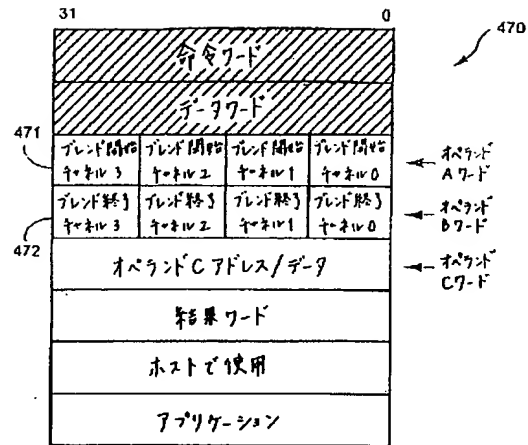 31 0
470
命令ワード
データワード
471
ブレンド開始 チャネル3
ブレンド開始 チャネル2
ブレンド開始 チャネル1
ブレンド開始 チャネル0
オペランド Aワード
472
ブレンド終了 チャネル3
ブレンド終了 チャネル2
ブレンド終了 チャネル1
ブレンド終了 チャネル0
オペランド Bワード
オペランドC アドレス/データ
オペランド Cワード
結果ワード
ホストで使用
アプリケーション